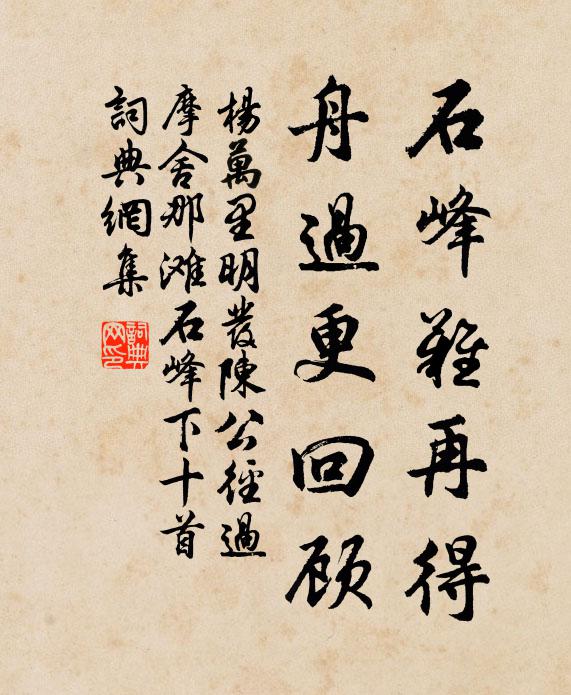 石峰難再得
舟過更回顧
楊萬里明發陳公徑過
摩舍那滩石峰下十首
詞典網集
詞典网印